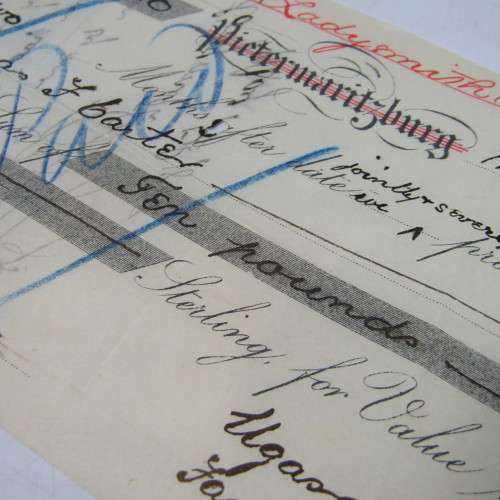 Ladysmith
Pietermaritzburg
Months after date we jointly & sever
Paid
Charter
Ten pounds
Sterling, for Value
Ugas